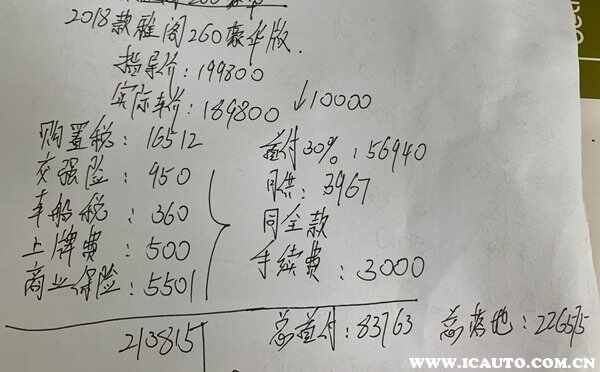 2018款雅阁260豪华版.
指导价:199800
实际车价:189800 ↓10000
购置税:16512
交强险:950
车船税:360
上牌费:500
商业保险:5501
首付30%:56940
月供:3967
同全款
手续费:3000
213815
总首付:83763
总落地:226575
WWW.ICAUTO.COM.CN